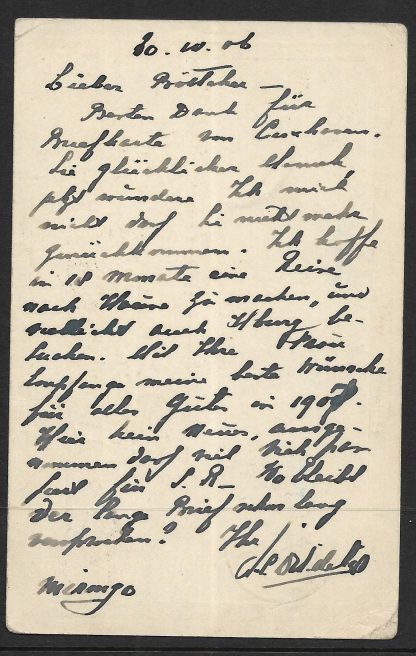 30.10.06
Lieber Böttcher —
Besten Dank für
Briefkarte von Cuxhaven.
Sie glücklicher Mensch
jetzt wundere Ich mich
nicht dass Sie nicht mehr
zurückkommen. Ich hoffe
in 18 Monate eine Reise
nach Hause zu machen, und
vielleicht auch Hburg be-
suchen. Mit Ihre Frau
Empfange meine beste Wünsche
für alles Gutes in 1907.
Hier kein Neues, ausge-
nommen dass viel
für S. R— Wo bleibt
der lange Brief schon lang
versprochen? Ihr
Misongo